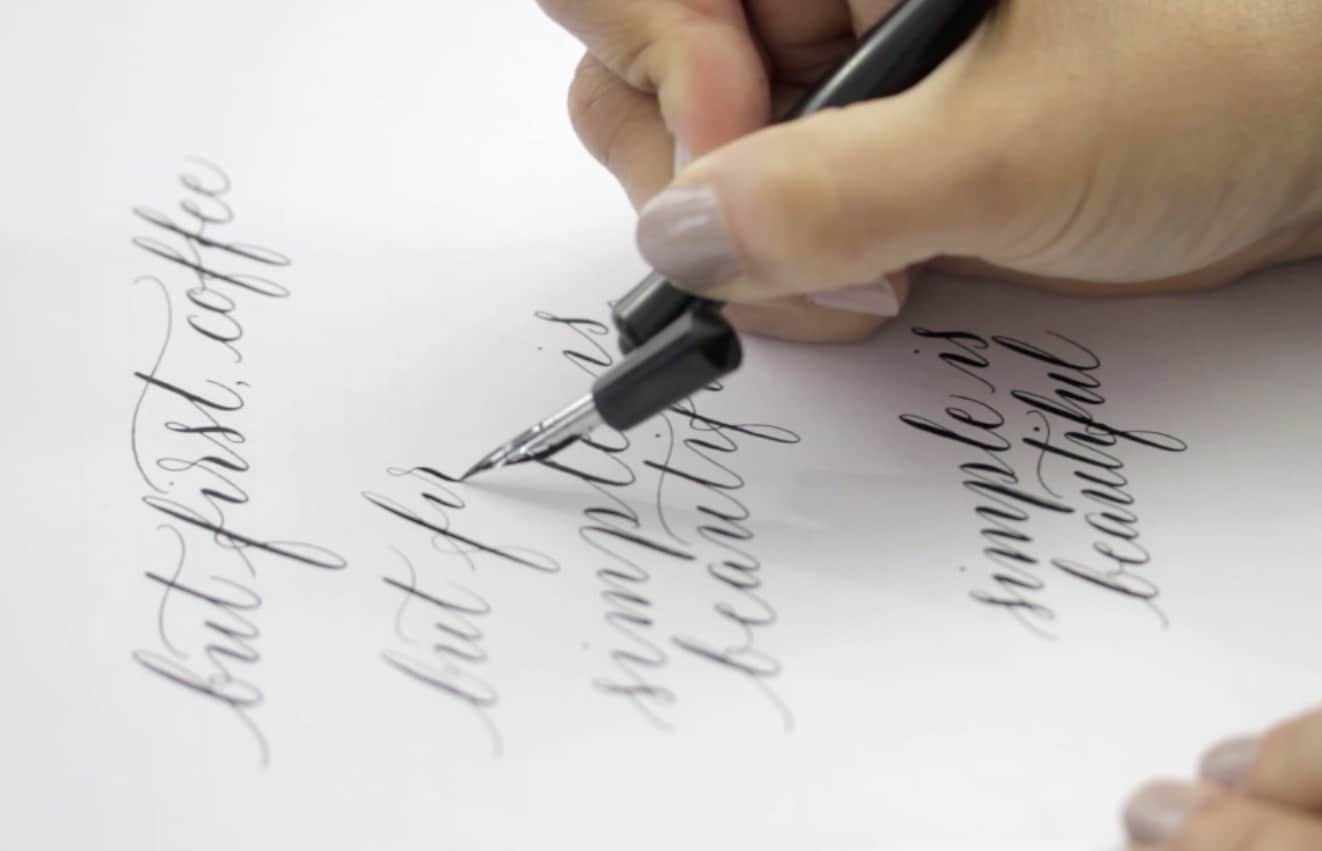 but first, coffee
but fir
simple is
beautif
simple is
beautiful